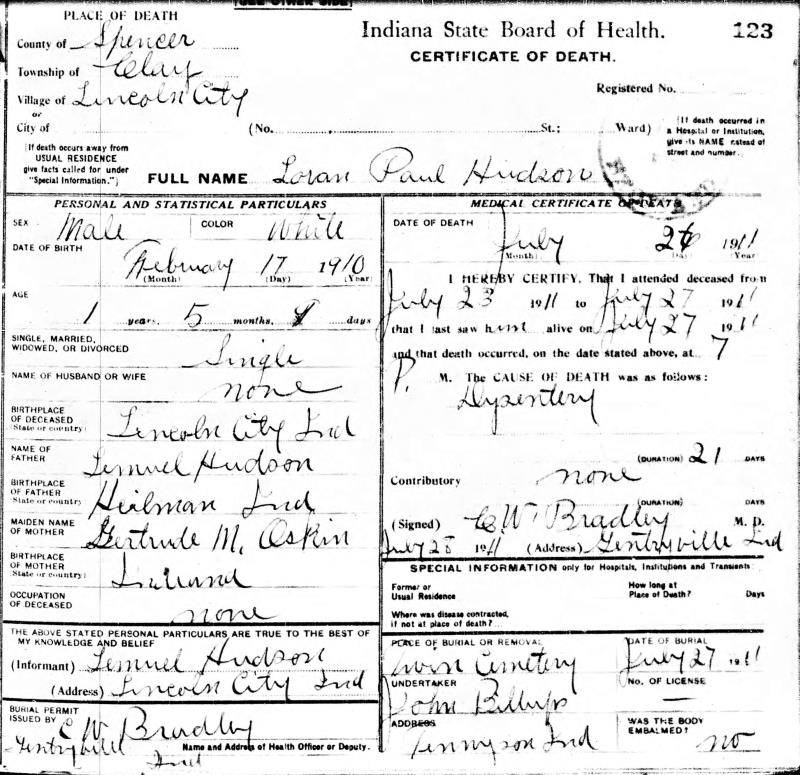 PLACE OF DEATH
County of Spencer
Township of Clay
Village of Lincoln City
or
City of
(No. St.; Ward)
Indiana State Board of Health.
CERTIFICATE OF DEATH.
123
Registered No.
If death occurred in a Hospital or Institution, give its NAME instead of street and number.
If death occurs away from USUAL RESIDENCE give facts called for under "Special Information.")
FULL NAME Loran Paul Hudson
PERSONAL AND STATISTICAL PARTICULARS
SEX Male COLOR White
DATE OF BIRTH
February 17 1910
(Month) (Day) (Year)
AGE
1 years, 5 months, 9 days
SINGLE, MARRIED, WIDOWED, OR DIVORCED Single
NAME OF HUSBAND OR WIFE none
BIRTHPLACE OF DECEASED
(State or country) Lincoln City Ind
NAME OF FATHER Lemuel Hudson
BIRTHPLACE OF FATHER
(State or country) Heilman Ind
MAIDEN NAME OF MOTHER Gertrude M. Oskin
BIRTHPLACE OF MOTHER
(State or country)
OCCUPATION OF DECEASED none
THE ABOVE STATED PERSONAL PARTICULARS ARE TRUE TO THE BEST OF MY KNOWLEDGE AND BELIEF
(Informant) Lemuel Hudson
(Address) Lincoln City Ind
BURIAL PERMIT ISSUED BY C W Bradley
Gentryville Ind
Name and Address of Health Officer or Deputy.
MEDICAL CERTIFICATE OF DEATH
DATE OF DEATH
July 26 1911
(Month) (Day) (Year)
I HEREBY CERTIFY, That I attended deceased from
July 23 1911 to July 27 1911
that I last saw him alive on July 27 1911
and that death occurred, on the date stated above, at 7
P. M. The CAUSE OF DEATH was as follows:
Dysentery
(DURATION) 21 DAYS
Contributory none
(DURATION) DAYS
(Signed) C W Bradley M. D.
July 28 1911 (Address) Gentryville Ind
SPECIAL INFORMATION only for Hospitals, Institutions and Transients:
Former or Usual Residence
How long at Place of Death? Days
Where was disease contracted, if not at place of death?
PLACE OF BURIAL OR REMOVAL
Cemetery
DATE OF BURIAL
July 27 1911
UNDERTAKER
John Billups
No. OF LICENSE
—
ADDRESS
Tennyson Ind
WAS THE BODY EMBALMED? no